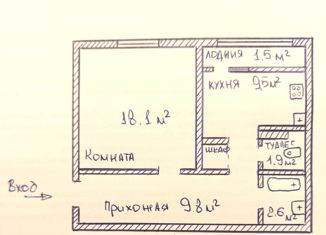 лоджия 1,5 м²
кухня 9,5 м²
18.1 м²
Комната
шкаф
туалет
1.9 м²
Вход
Прихожая 9.8 м²
2.6 м²